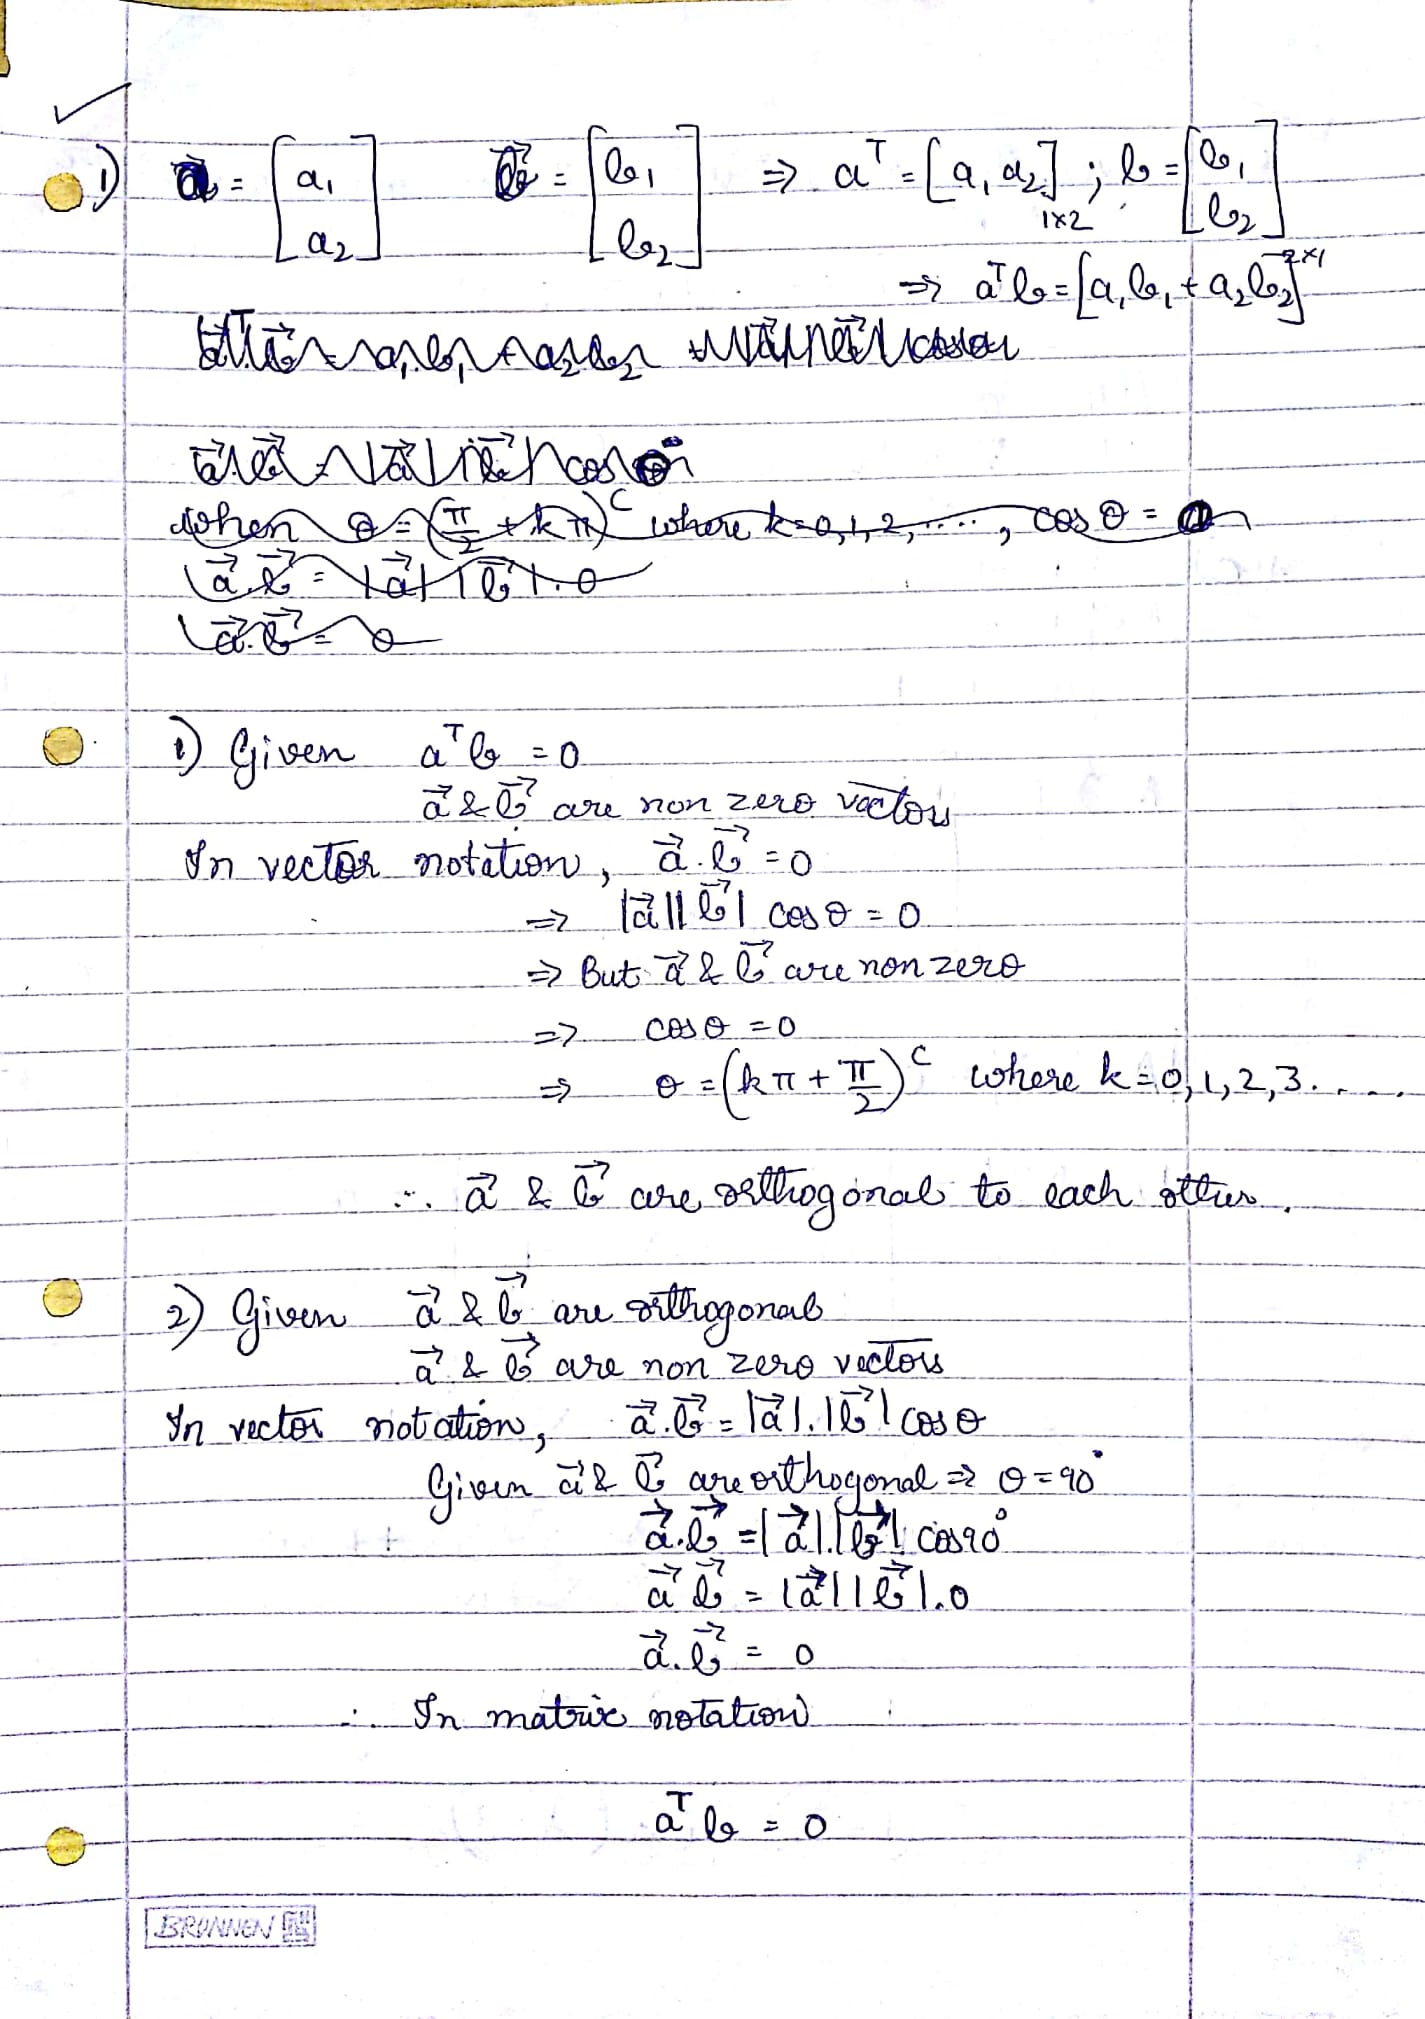 1) a⃗ = [a₁ a₂] b⃗ = [b₁ b₂] ⇒ aᵀ = [a₁ a₂]₁ₓ₂ ; b = [b₁ b₂]₂ₓ₁
⇒ aᵀb = [a₁b₁ + a₂b₂]
when θ = (π/2 + kπ)ᶜ where k=0,1,2,....., cos θ = 0
a⃗.b⃗ = |a⃗| |b⃗|.0
a⃗.b⃗ = 0
1) Given aᵀb = 0
a⃗ & b⃗ are non zero vectors
In vector notation, a⃗.b⃗ = 0
⇒ |a⃗||b⃗| cos θ = 0
⇒ But a⃗ & b⃗ are non zero
⇒ cos θ = 0
⇒ θ = (kπ + π/2)ᶜ where k=0,1,2,3.....
∴ a⃗ & b⃗ are orthogonal to each other.
2) Given a⃗ & b⃗ are orthogonal
a⃗ & b⃗ are non zero vectors
In vector notation, a⃗.b⃗ = |a⃗|.|b⃗| cos θ
Given a⃗ & b⃗ are orthogonal ⇒ θ = 90°
a⃗.b⃗ = |a⃗|.|b⃗| cos 90°
a⃗ b⃗ = |a⃗||b⃗|.0
a⃗.b⃗ = 0
∴ In matrix notation
aᵀb = 0
BRUNNEN